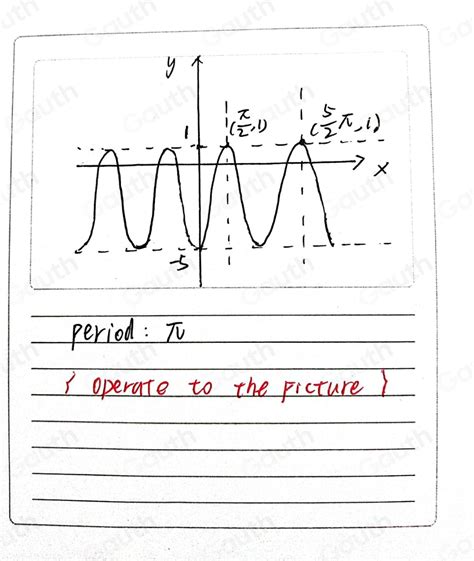 y
1
(π/2, 1)
(5/2 π, 1)
x
-5
period: π
{ operate to the picture }
Gauth